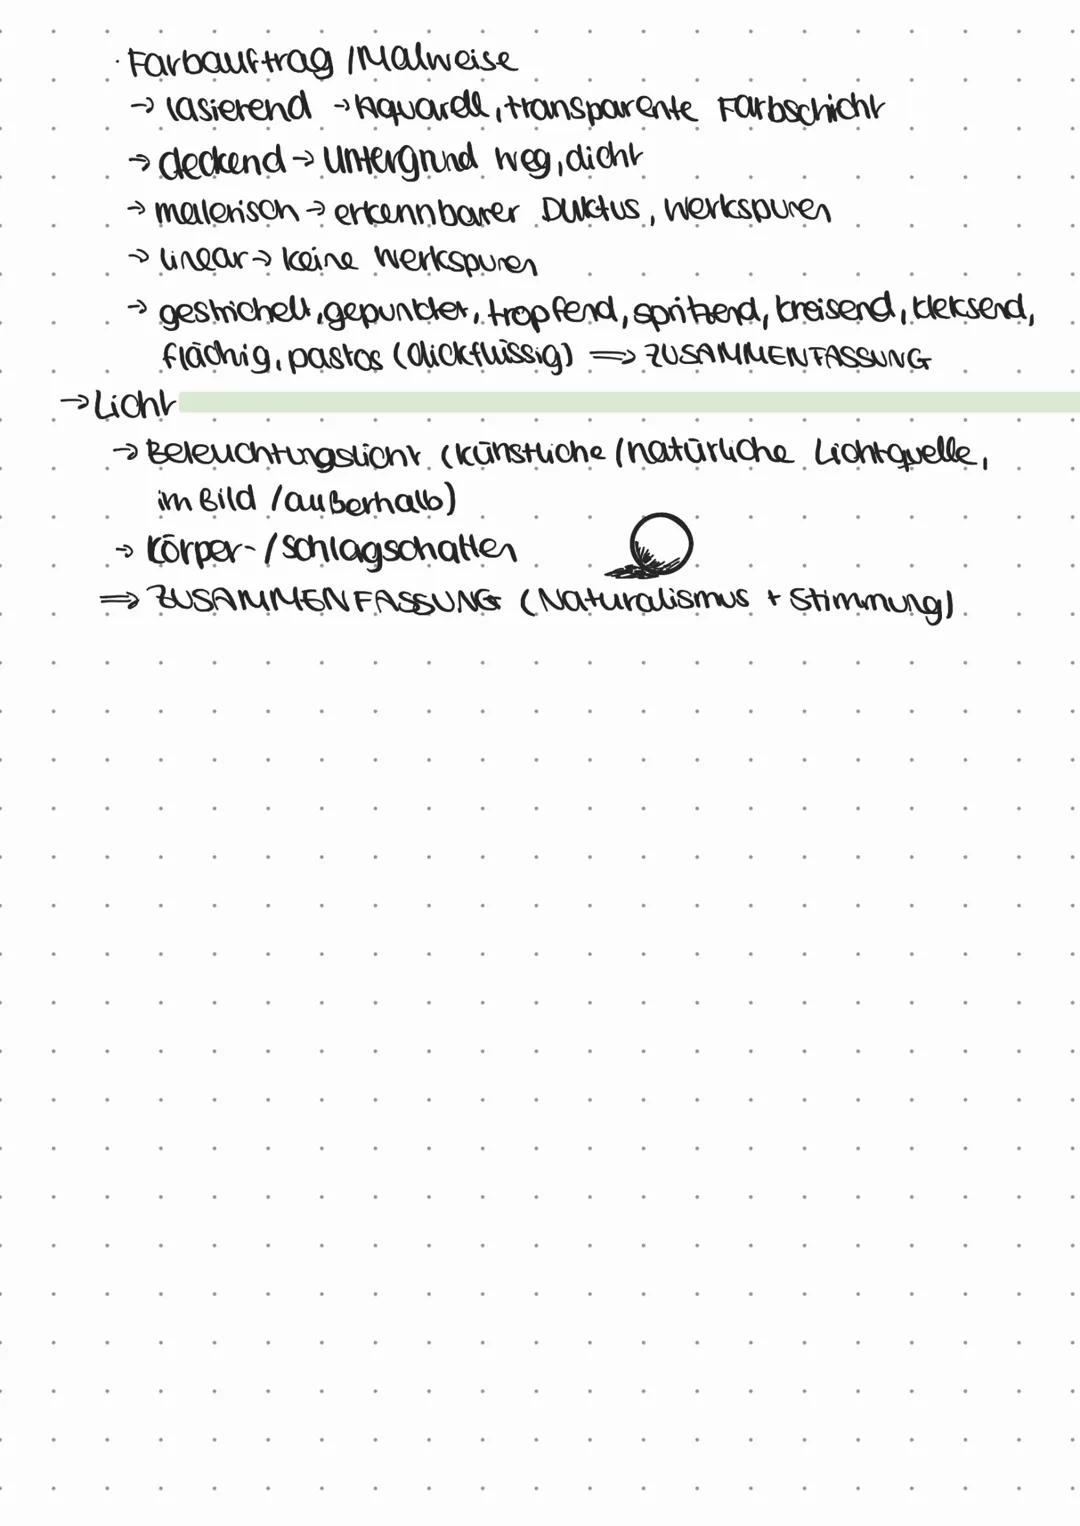 · Farbauftrag / Malweise
→ lasierend → Aquarell, transparente Farbschicht
→ deckend → Untergrund weg, dicht
→ malerisch → erkennbarer Duktus, Werkspuren
→ linear → keine Werkspuren
→ gestrichelt, gepunktet, tropfend, spritzend, kreisend, kleksend,
flächig, pastos (dickflüssig) ⇒ ZUSAMMENFASSUNG
→ Licht
→ Beleuchtungslicht (künstliche / natürliche Lichtquelle,
im Bild / außerhalb)
→ Körper- / Schlagschatten
⇒ ZUSAMMENFASSUNG (Naturalismus + Stimmung)